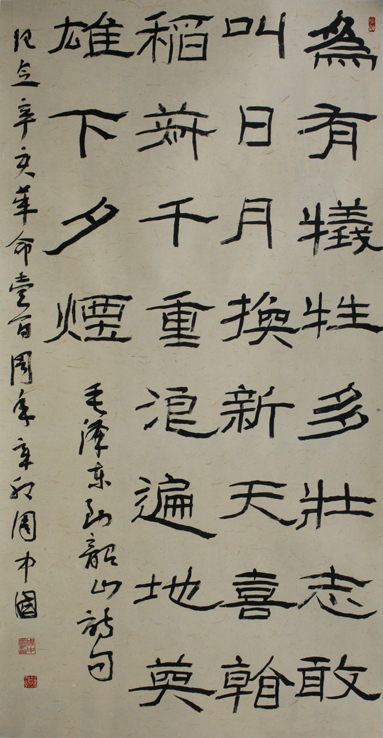 為有犧牲多壯志敢
叫日月換新天喜看
稻菽千重浪遍地英
雄下夕煙
毛澤东到韶山詩句
纪念辛亥革命壹百周年辛卯周中國